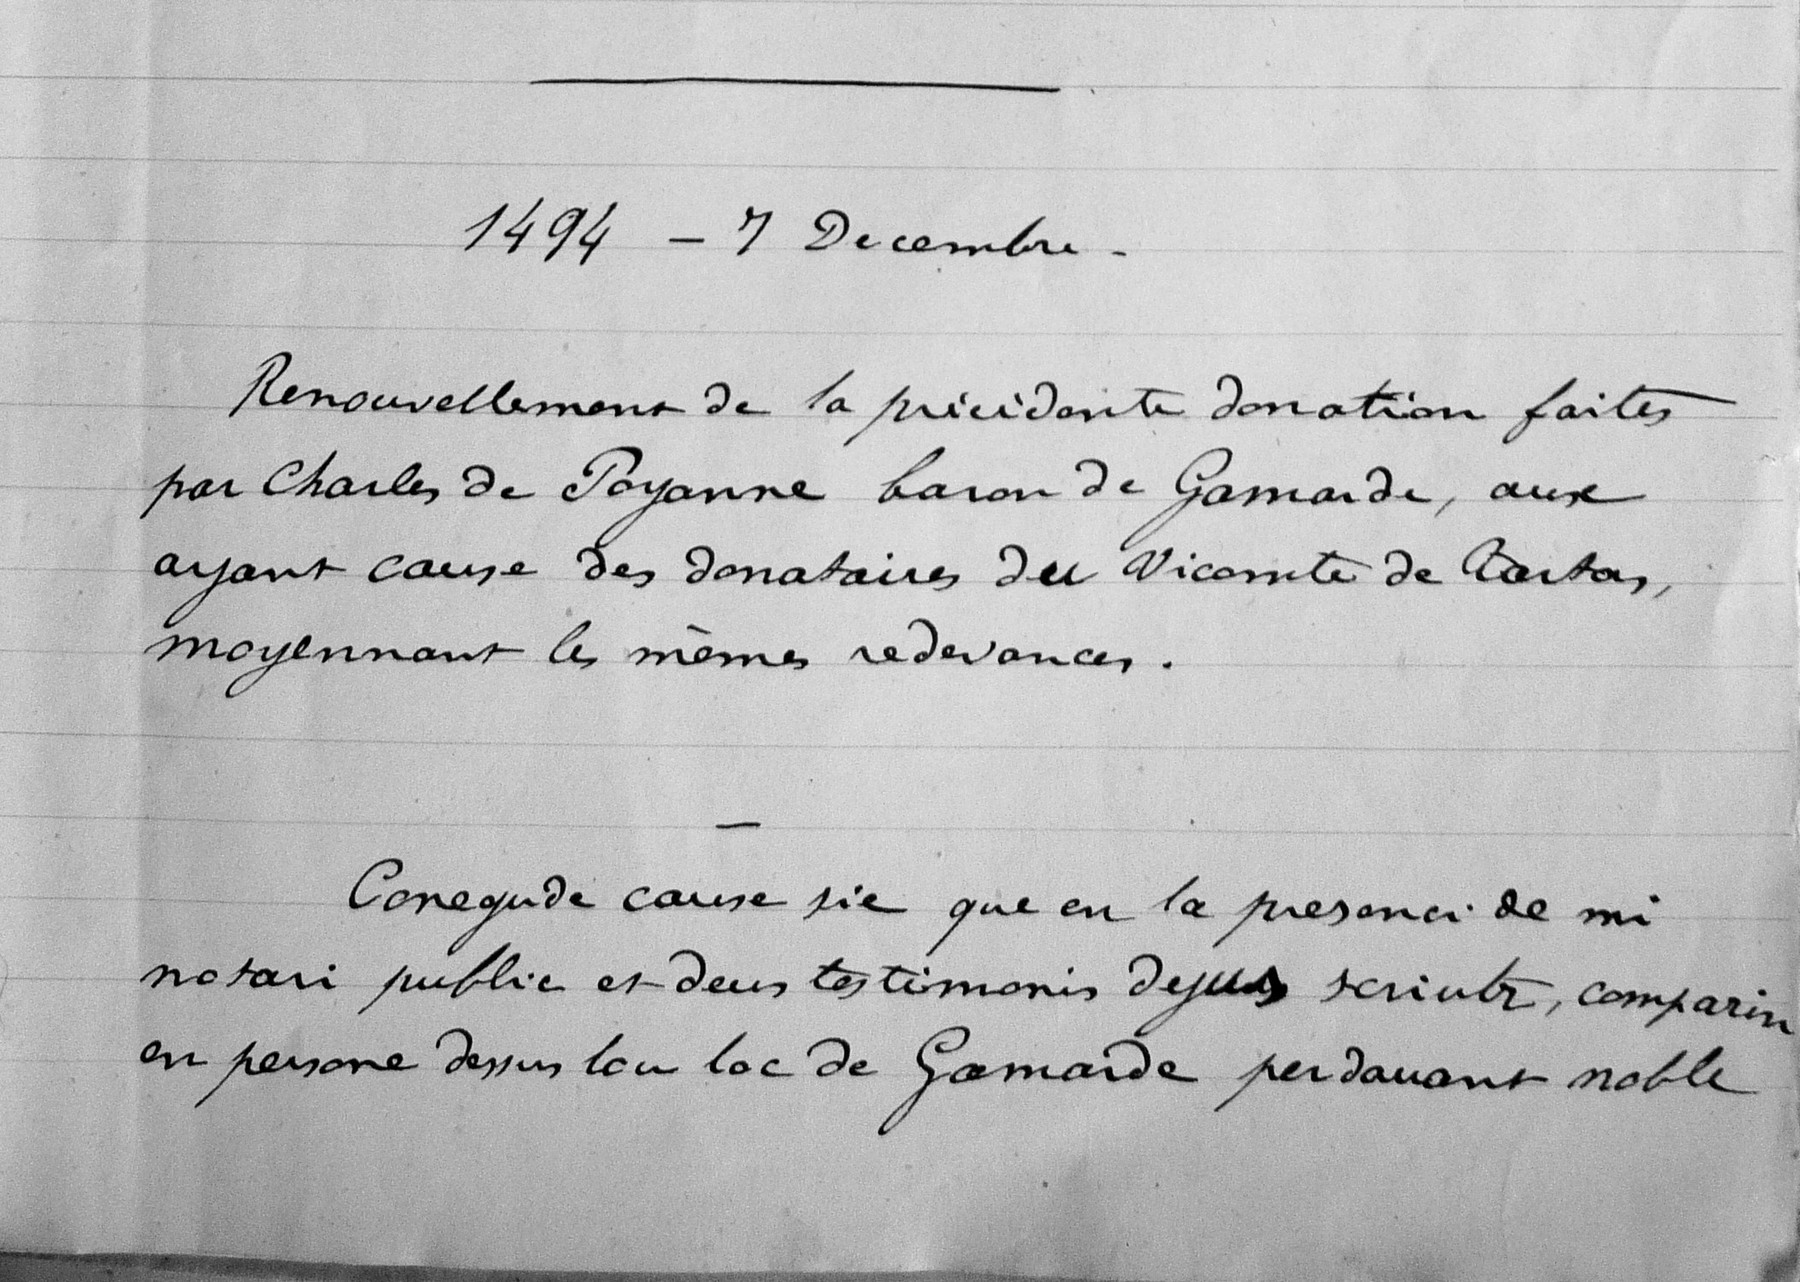 1494 - 7 Decembre -
Renouvellement de la précédente donation faites
par Charles de Poyanne baron de Gamarde, aux
ayant cause des donataires du Vicomte de Tartas,
moyennant les mêmes redevances.
Conegude cause sie que en la presenci de mi
notari public et deus testimonis dejus scriutz, comparin
en persone dessus lou loc de Gamarde perdavant noble